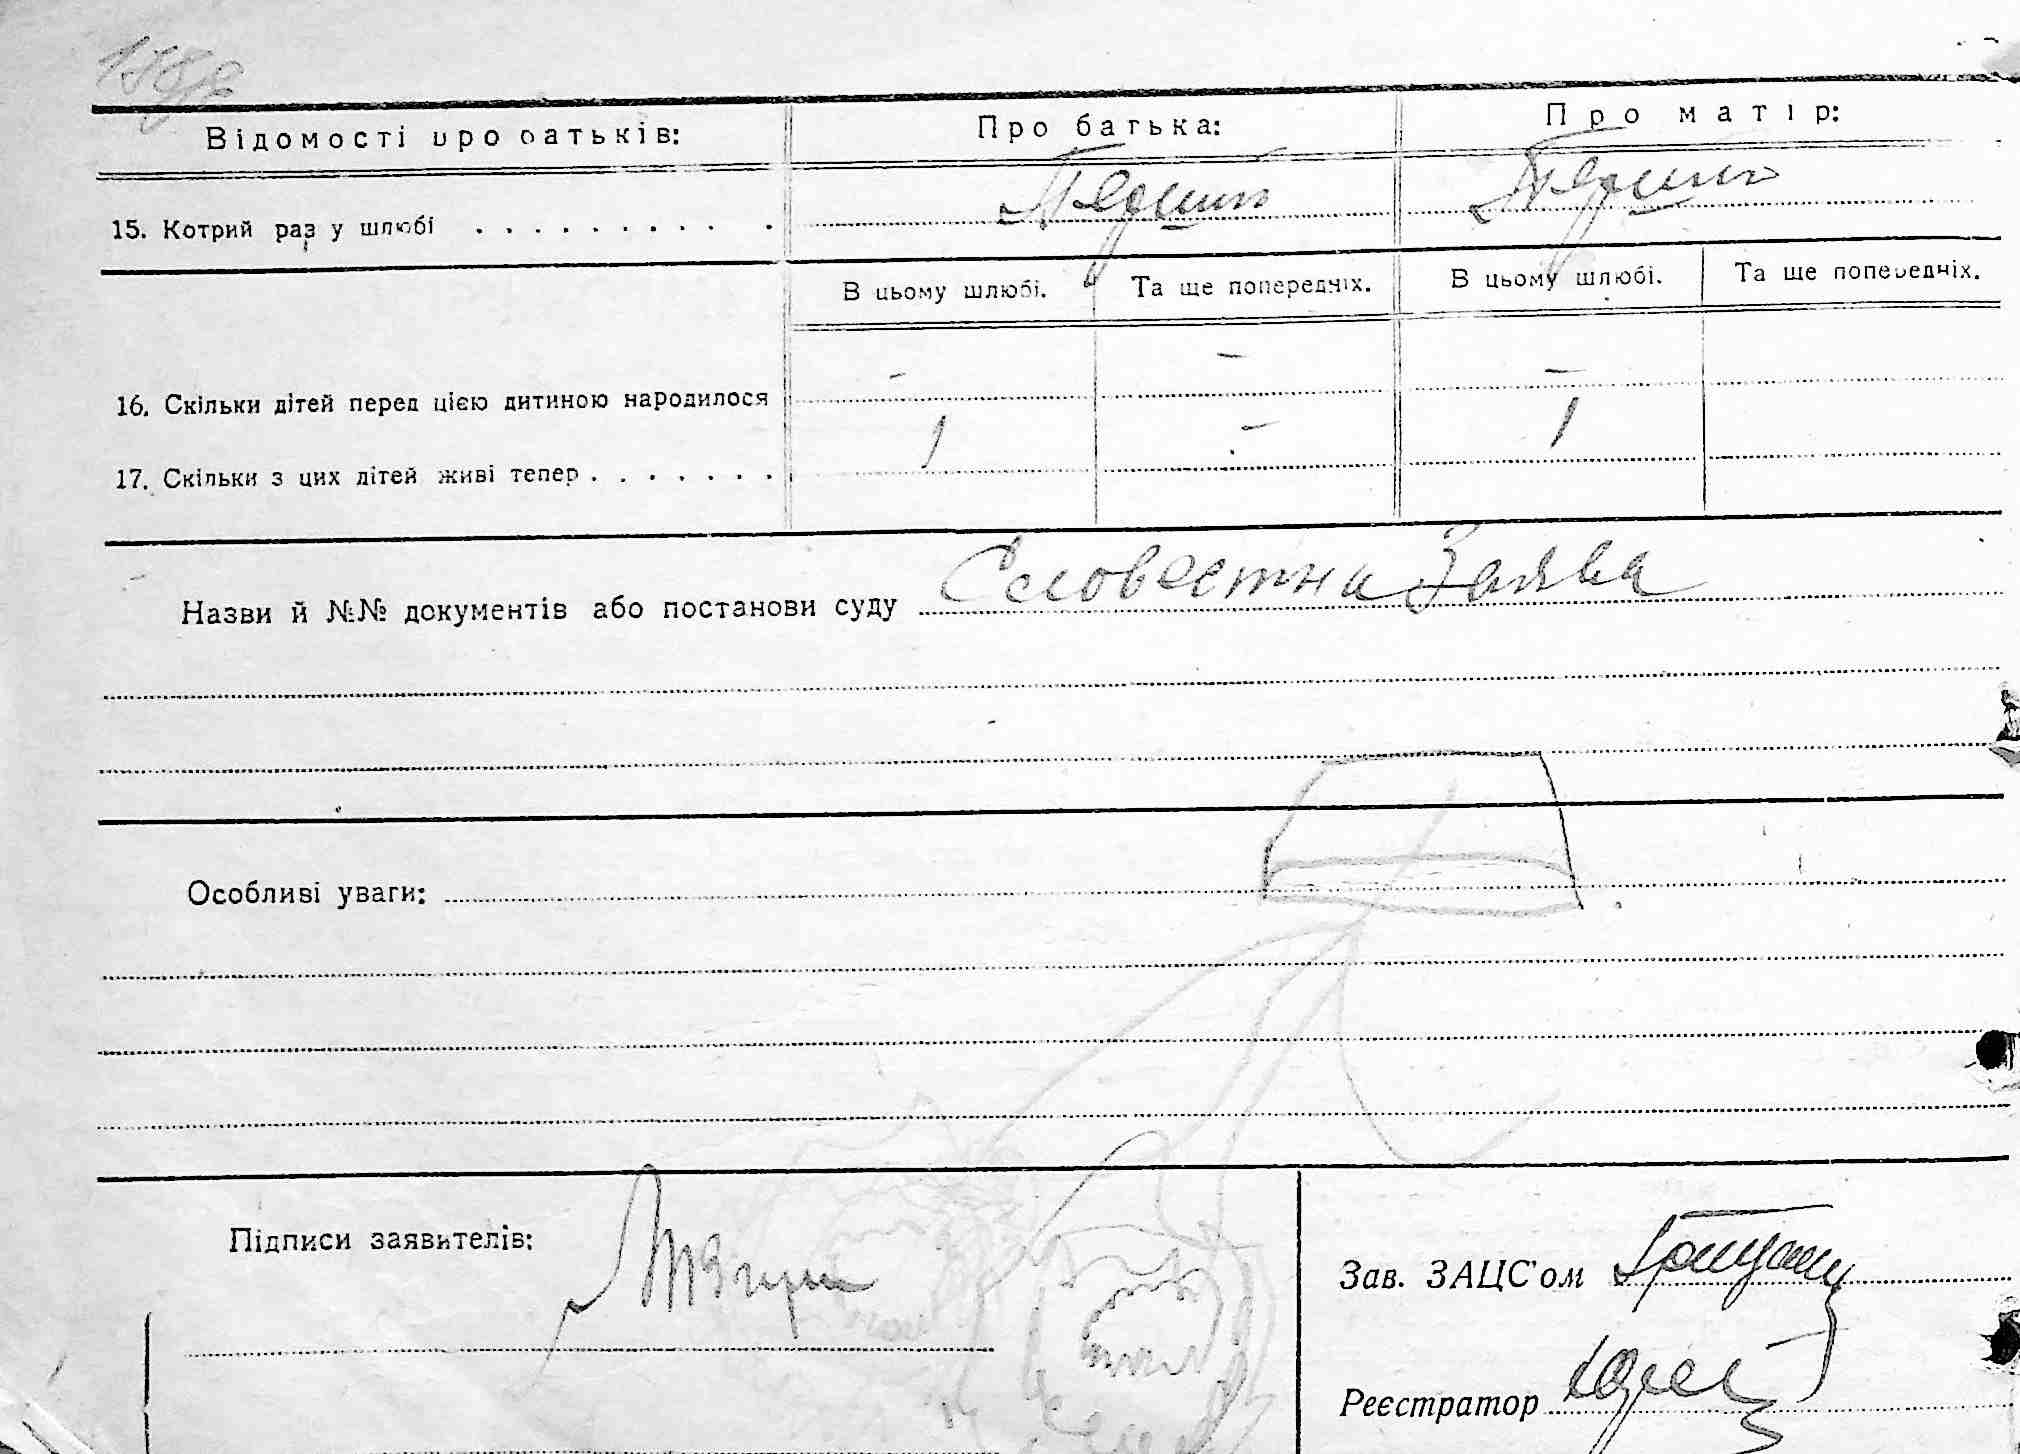 Відомості про батьків: Про батька: Про матір:
15. Котрий раз у шлюбі . . . . . . . . . . . Перший Перший
В цьому шлюбі. Та ще попередніх. В цьому шлюбі. Та ще попередніх.
16. Скільки дітей перед цією дитиною народилося - - -
17. Скільки з цих дітей живі тепер . . . . . . . 1 - 1
Назви й №№ документів або постанови суду Словестна Заява
Особливі уваги:
Підписи заявителів:
Зав. ЗАЦС'ом
Реєстратор